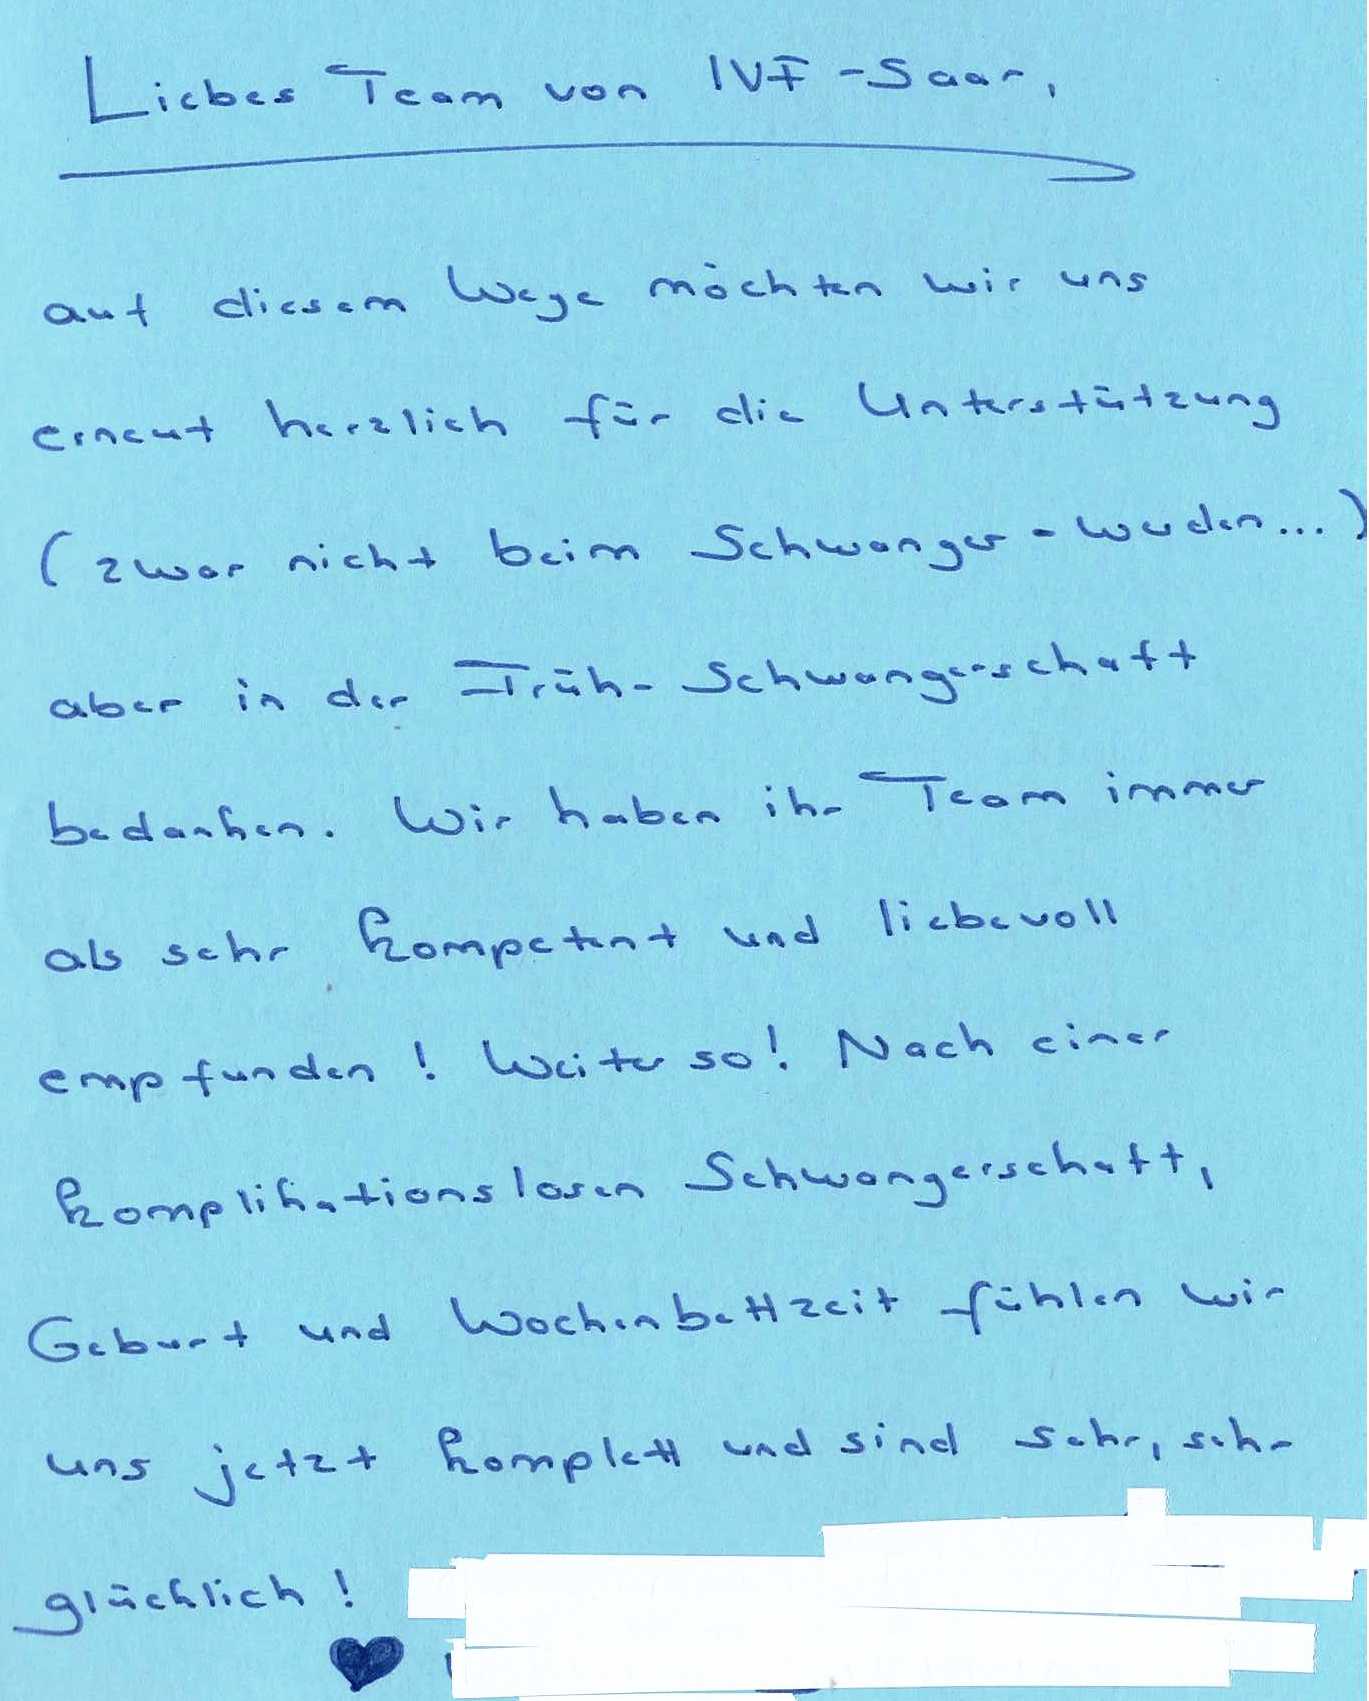 Liebes Team von IVF-Saar,
auf diesem Wege möchten wir uns
erneut herzlich für die Unterstützung
(zwar nicht beim Schwanger-werden...)
aber in der Früh-Schwangerschaft
bedanken. Wir haben ihr Team immer
als sehr kompetent und liebevoll
empfunden! Weiter so! Nach einer
komplikationslosen Schwangerschaft,
Geburt und Wochenbettzeit fühlen wir
uns jetzt komplett und sind sehr, sehr
glücklich!